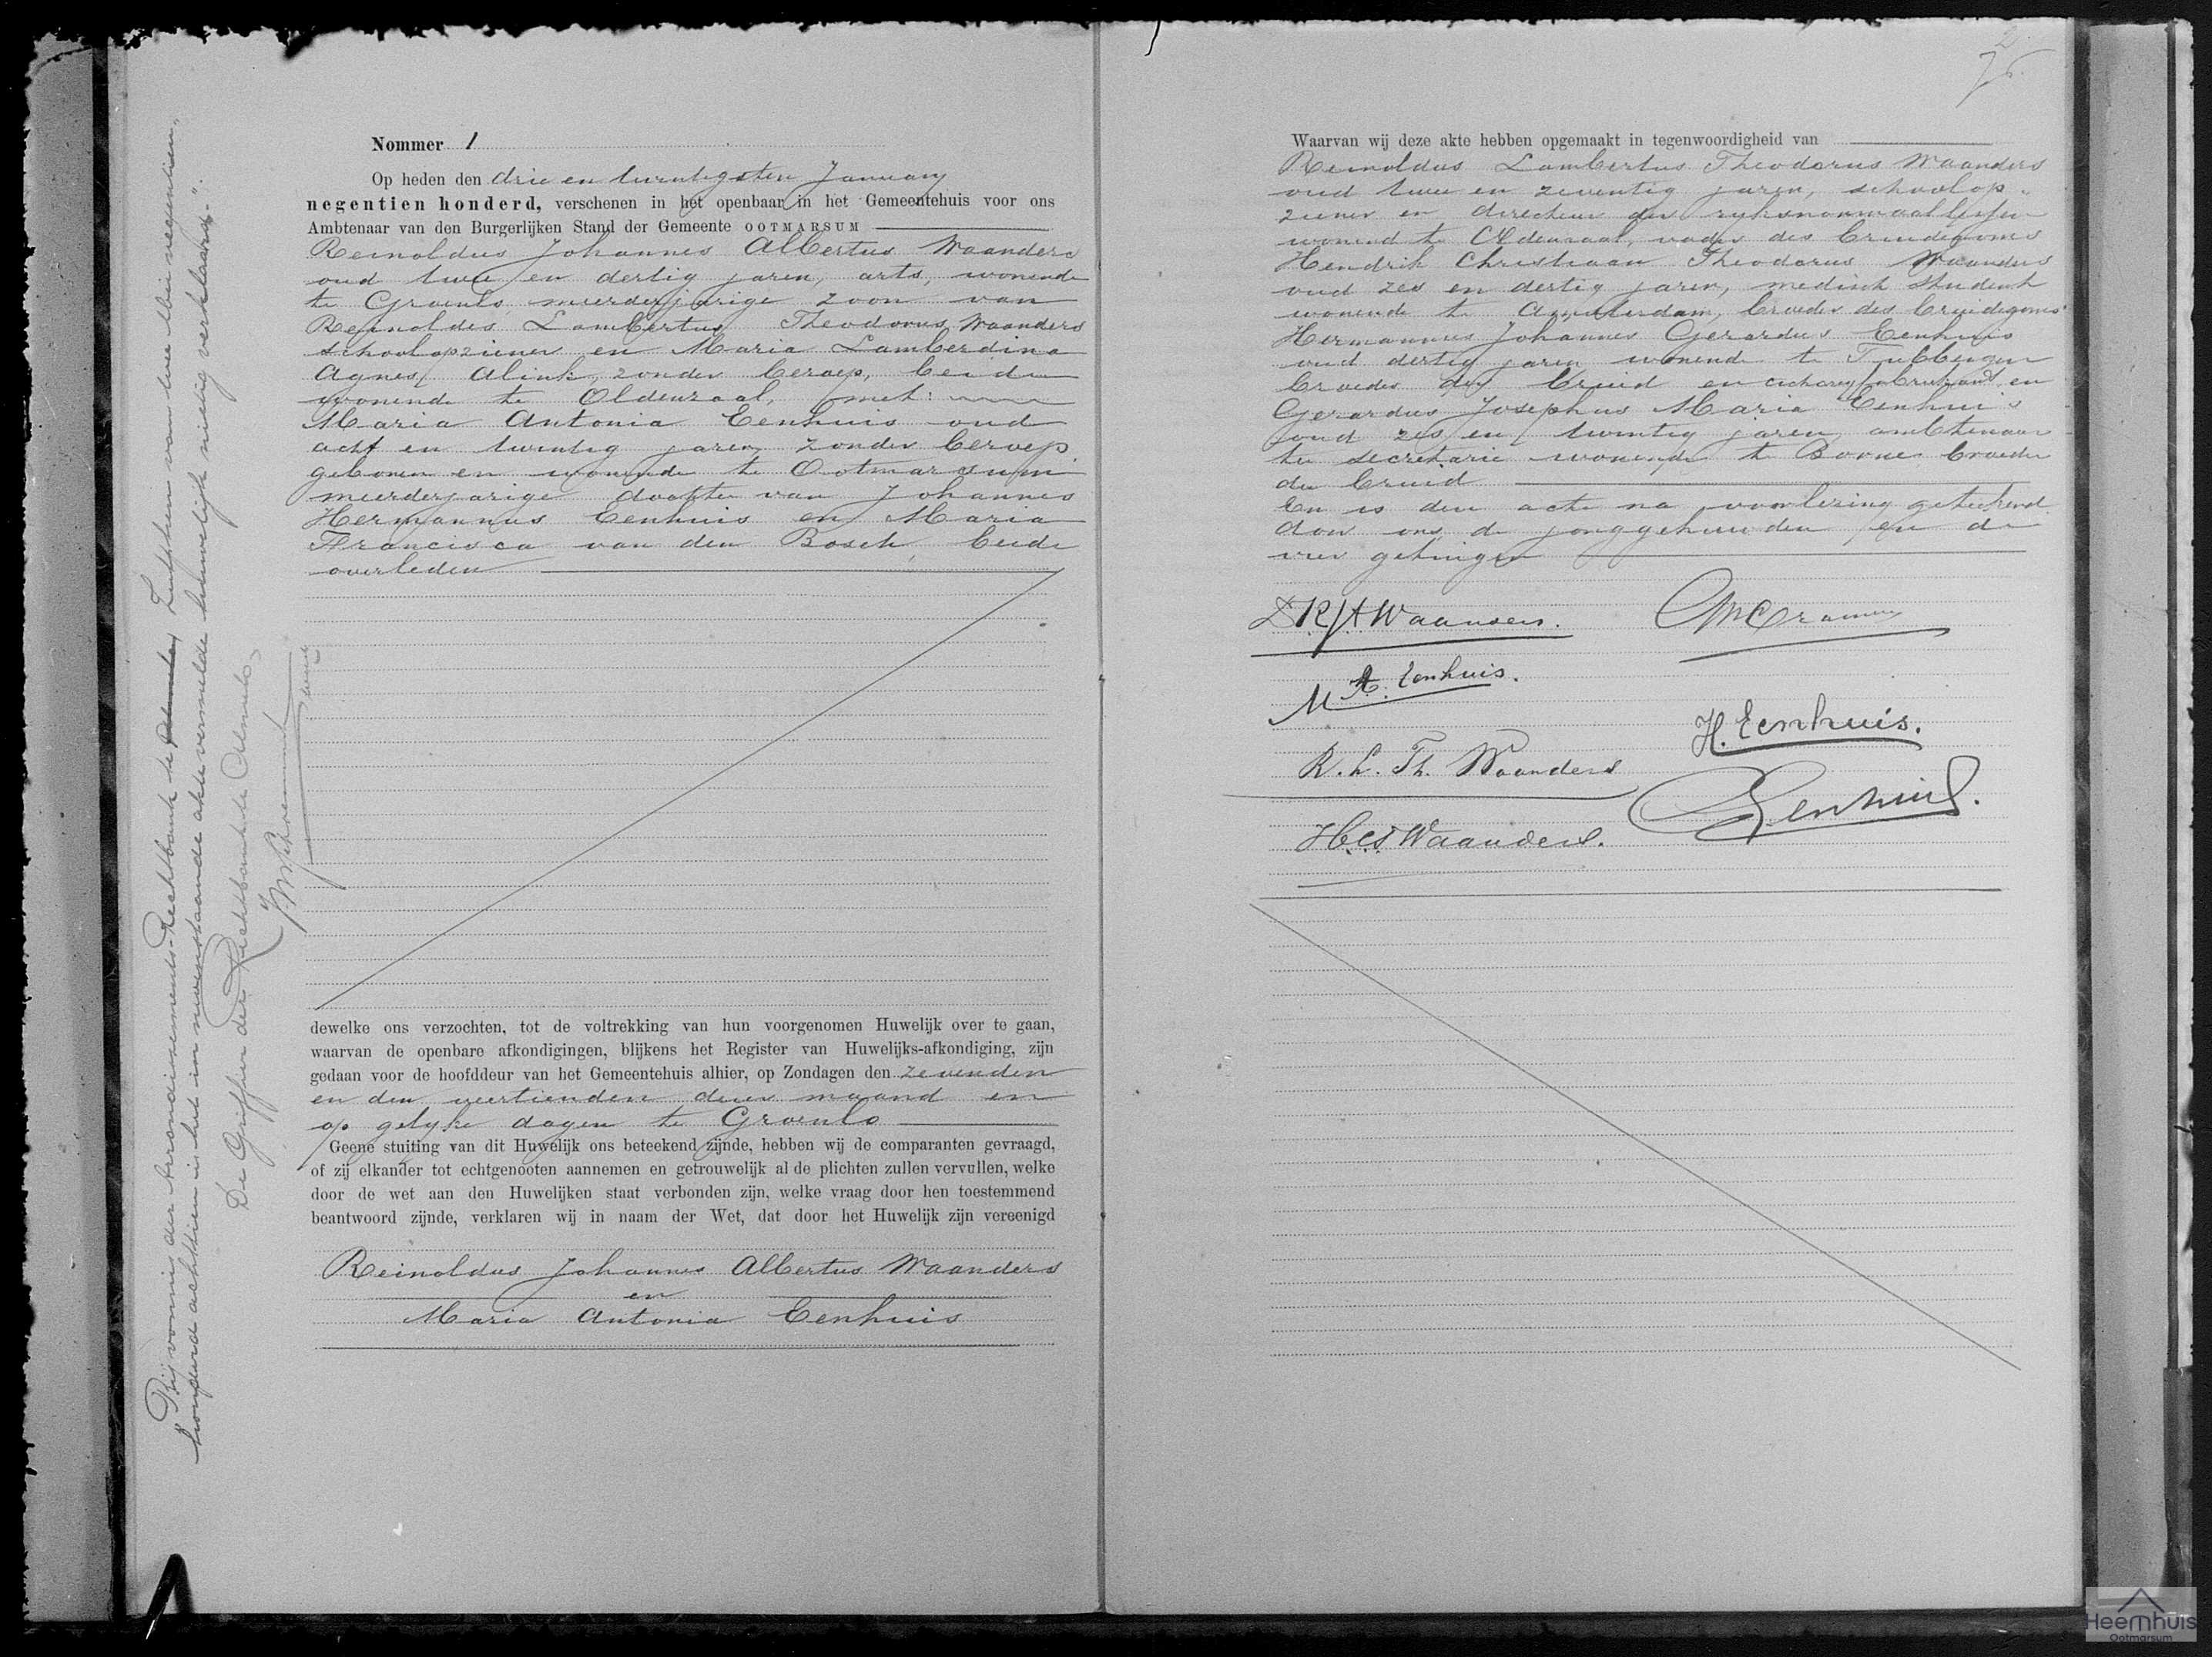 Nommer 1
Op heden den drie en twintigsten January
negentien honderd, verschenen in het openbaar in het Gemeentehuis voor ons
Ambtenaar van den Burgerlijken Stand der Gemeente OOTMARSUM
Reinoldus Johannes Albertus Waanders
oud twee en dertig jaren, arts, wonende
te Groenlo, meerderjarige zoon van
Reinoldus Lambertus Theodorus Waanders
schoolopziener en Maria Lamberdina
Agnes Alink, zonder beroep, beide
wonende te Oldenzaal, met:
Maria Antonia Eenhuis oud
acht en twintig jaren, zonder beroep,
geboren en wonende te Ootmarsum
meerderjarige dochter van Johannes
Hermannus Eenhuis en Maria
Francisca van den Bosch, beide
overleden
dewelke ons verzochten, tot de voltrekking van hun voorgenomen Huwelijk over te gaan,
waarvan de openbare afkondigingen, blijkens het Register van Huwelijks-afkondiging, zijn
gedaan voor de hoofddeur van het Gemeentehuis alhier, op Zondagen den zevenden
en den veertienden dezer maand en
op gelyke dagen te Groenlo
Geene stuiting van dit Huwelijk ons beteekend zijnde, hebben wij de comparanten gevraagd,
of zij elkander tot echtgenooten aannemen en getrouwelijk al de plichten zullen vervullen, welke
door de wet aan den Huwelijken staat verbonden zijn, welke vraag door hen toestemmend
beantwoord zijnde, verklaren wij in naam der Wet, dat door het Huwelijk zijn vereenigd
Reinoldus Johannes Albertus Waanders
en
Maria Antonia Eenhuis
"Bij vonnis der Arrondissements-Rechtbank te Zutphen van twee Mei negentien-
honderd achttien is het in nevenstaande akte vermelde huwelijk nietig verklaard."
De Griffier der Rechtbank te Almelo,
2
Waarvan wij deze akte hebben opgemaakt in tegenwoordigheid van
Reinoldus Lambertus Theodorus Waanders
oud twee en zeventig jaren, schoolop-
ziener en directeur der ryksnormaallessen
wonend te Oldenzaal, vader des bruidegoms
Hendrik Christiaan Theodorus Waanders
oud zes en dertig jaren, medisch student
wonende te Amsterdam, broeder des bruidegoms
Hermannus Johannes Gerardus Eenhuis
oud dertig jaren wonend te Tubbergen
broeder der bruid en cichoreyfabrikant en
Gerardus Josephus Maria Eenhuis
oud zes en twintig jaren ambtenaar
ter secretarie wonende te Borne broeder
der bruid
En is deze acte na voorlezing geteekend
door ons de jonggehuwden en de
vier getuigen
D R J A Waanders.
M A. Eenhuis.
H. Eenhuis.
R. L. Th. Waanders
Eenhuis.
H C T Waanders.
Heemhuis
Ootmarsum